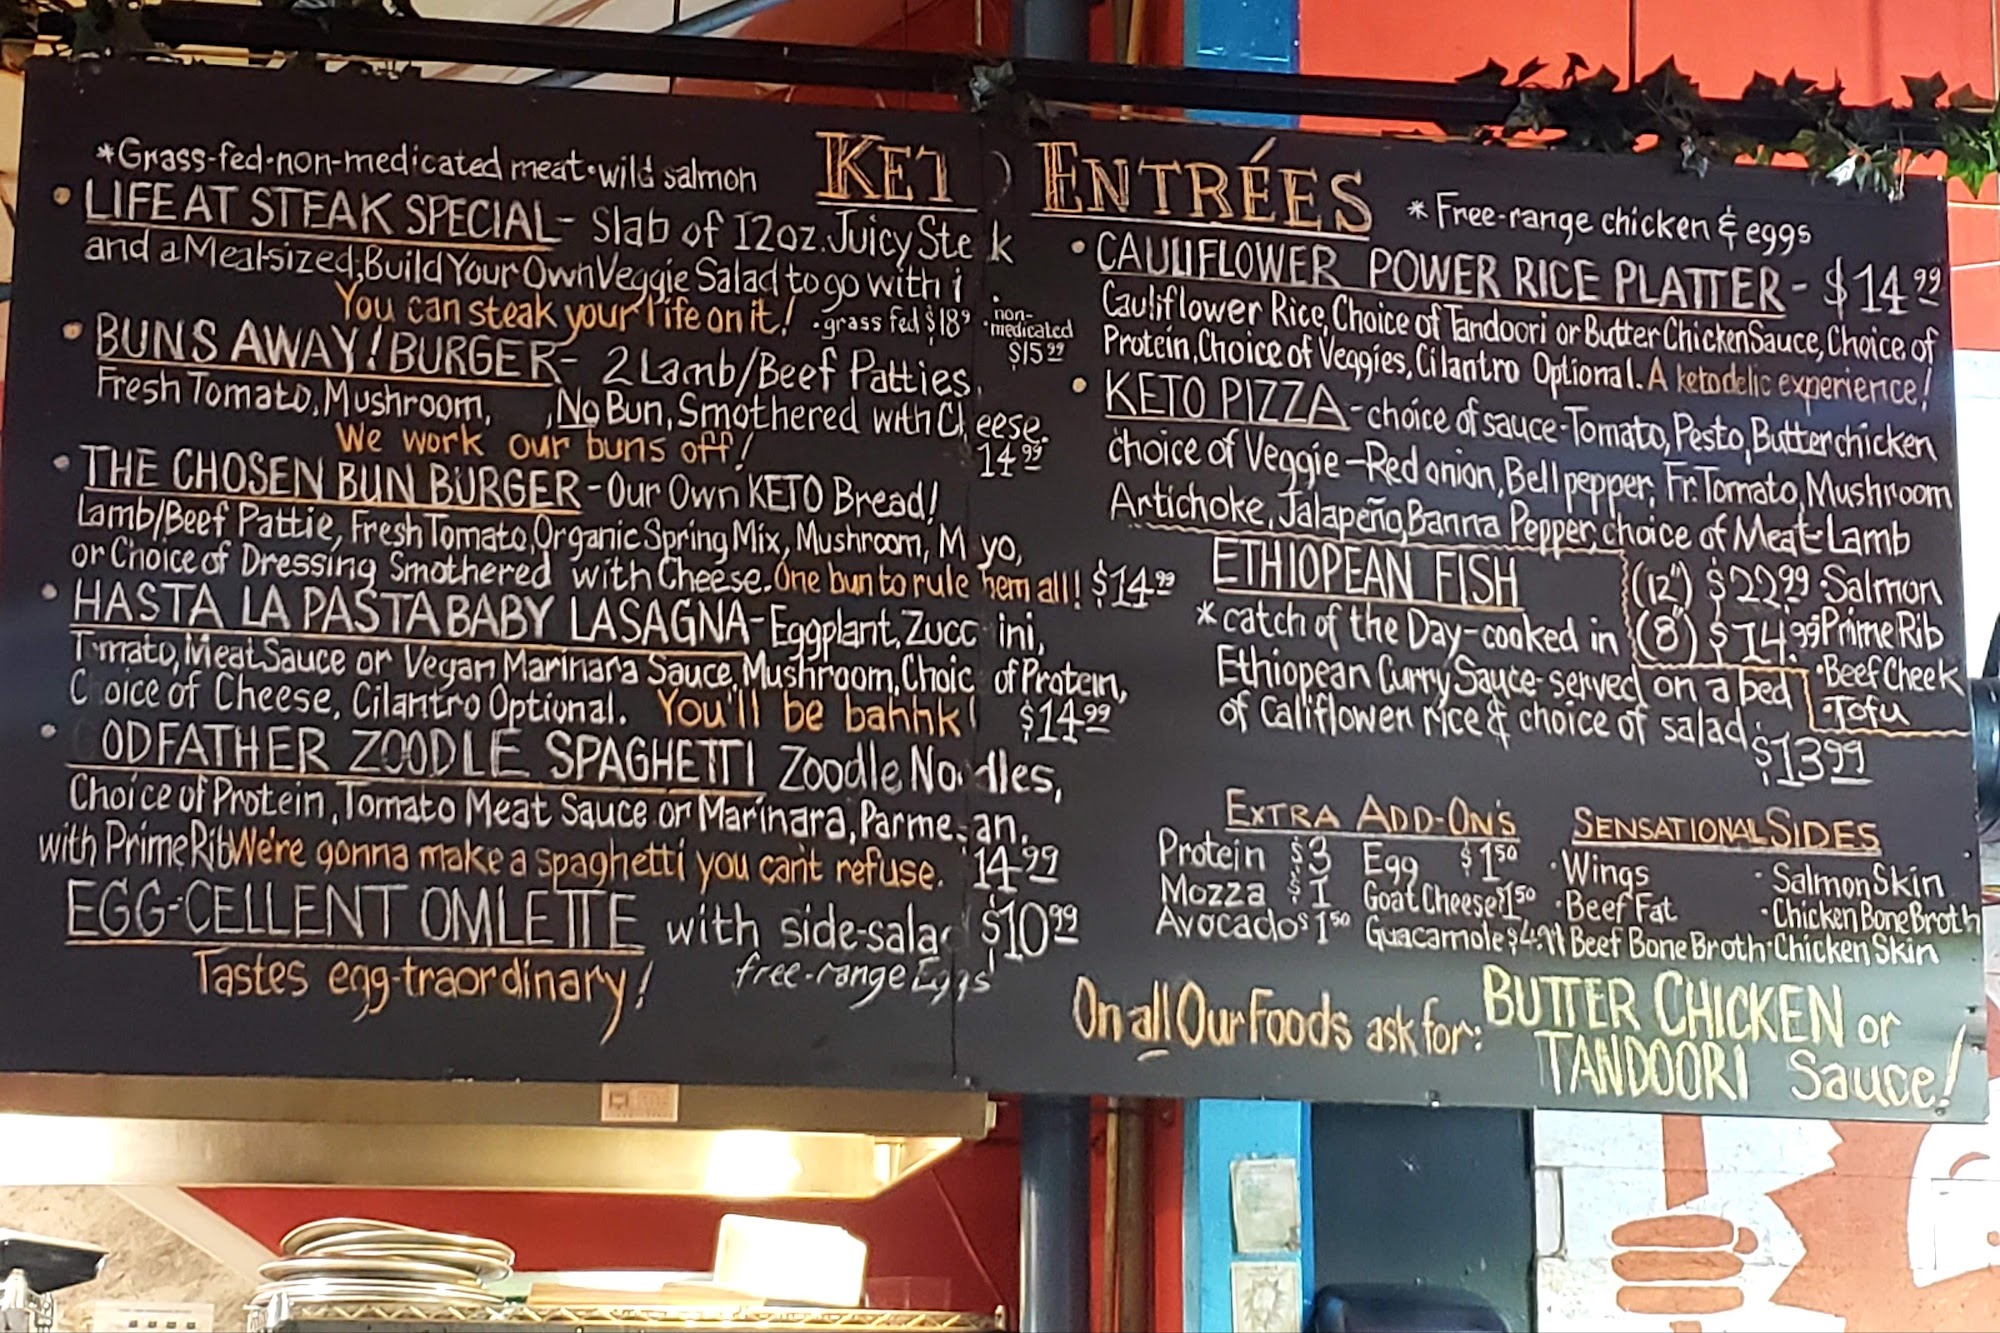 *Grass-fed-non-medicated meat•wild salmon
KET
ENTRÉES
*Free-range chicken & eggs
• LIFE AT STEAK SPECIAL- Slab of 12oz. Juicy Ste k
and a Meal-sized, Build Your Own Veggie Salad to go with i
You can steak your life on it! •grass fed $18⁹ •non-medicated $15⁹⁹
• BUNS AWAY! BURGER- 2 Lamb/Beef Patties,
Fresh Tomato, Mushroom, , No Bun, Smothered with Ch eese.
We work our buns off! 14⁹⁹
• THE CHOSEN BUN BURGER-Our Own KETO Bread!
Lamb/Beef Pattie, Fresh Tomato, Organic Spring Mix, Mushroom, M yo,
or Choice of Dressing Smothered with Cheese. One bun to rule hem all! $14⁹⁹
• HASTA LA PASTA BABY LASAGNA-Eggplant, Zucc ini,
T mato, Meat Sauce or Vegan Marinara Sauce, Mushroom, Choic of Protein,
C oice of Cheese, Cilantro Optional. You'll be bahhk! $14⁹⁹
• ODFATHER ZOODLE SPAGHETTI Zoodle No dles,
Choice of Protein, Tomato Meat Sauce or Marinara, Parmesan.
with Prime Rib We're gonna make a spaghetti you can't refuse. 14⁹⁹
EGG-CELLENT OMLETTE with side-salad $10⁹⁹
Tastes egg-traordinary! free-range Eggs
• CAULIFLOWER POWER RICE PLATTER- $14⁹⁹
Cauliflower Rice, Choice of Tandoori or Butter Chicken Sauce, Choice of
Protein, Choice of Veggies, Cilantro Optional. A ketodelic experience!
• KETO PIZZA-choice of sauce-Tomato, Pesto, Butter chicken
choice of Veggie-Red onion, Bell pepper, Fr. Tomato, Mushroom
Artichoke, Jalapeño, Banna Pepper, choice of Meat-Lamb
(12") $22⁹⁹ •Salmon
(8") $14.⁹⁹ •Prime Rib
•Beef Cheek
•Tofu
ETHIOPEAN FISH
*catch of the Day-cooked in
Ethiopean Curry Sauce-served on a bed
of Califlower rice & choice of salad. $13⁹⁹
EXTRA ADD-ON'S
Protein $3 Egg $1⁵⁰
Mozza $1 Goat Cheese $1⁵⁰
Avocado $1⁵⁰ Guacamole $4.99
SENSATIONAL SIDES
•Wings •Salmon Skin
•Beef Fat •Chicken Bone Broth
Beef Bone Broth •Chicken Skin
On all Our Foods ask for: BUTTER CHICKEN or
TANDOORI Sauce!